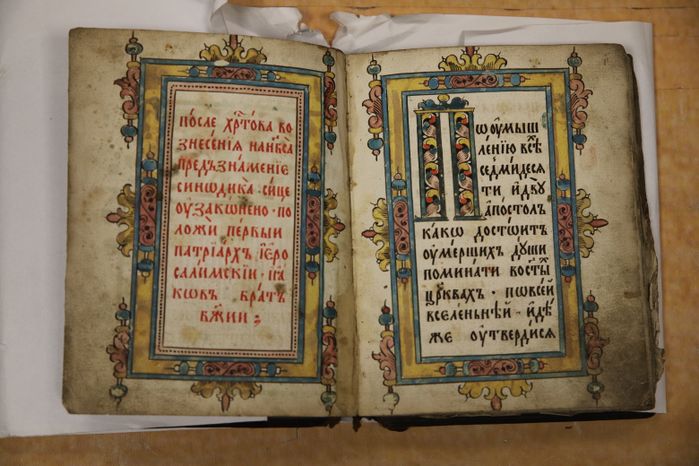 после хр҃това во
знесенїѧ на нб҃са
предъзнаменїе
сѵнѡдика · си́це
оу҆закѡнено · по
ложи первыи
патрїархъ і҆еро
салимскїи і҆а
кѡвъ братъ
бж҃їи ⁘
По оу҆мыш
ленїю всѣ
седми́десѧ
ти и҆ двꙋ
а҆постолъ
какѡ достои́тъ
оу҆ме́ршихъ дꙋши
поминати во ст҃ы
цр҃квахъ · по всѝ
вселеньнѣ́й · и҆дѣ́
же оу҆твердисѧ